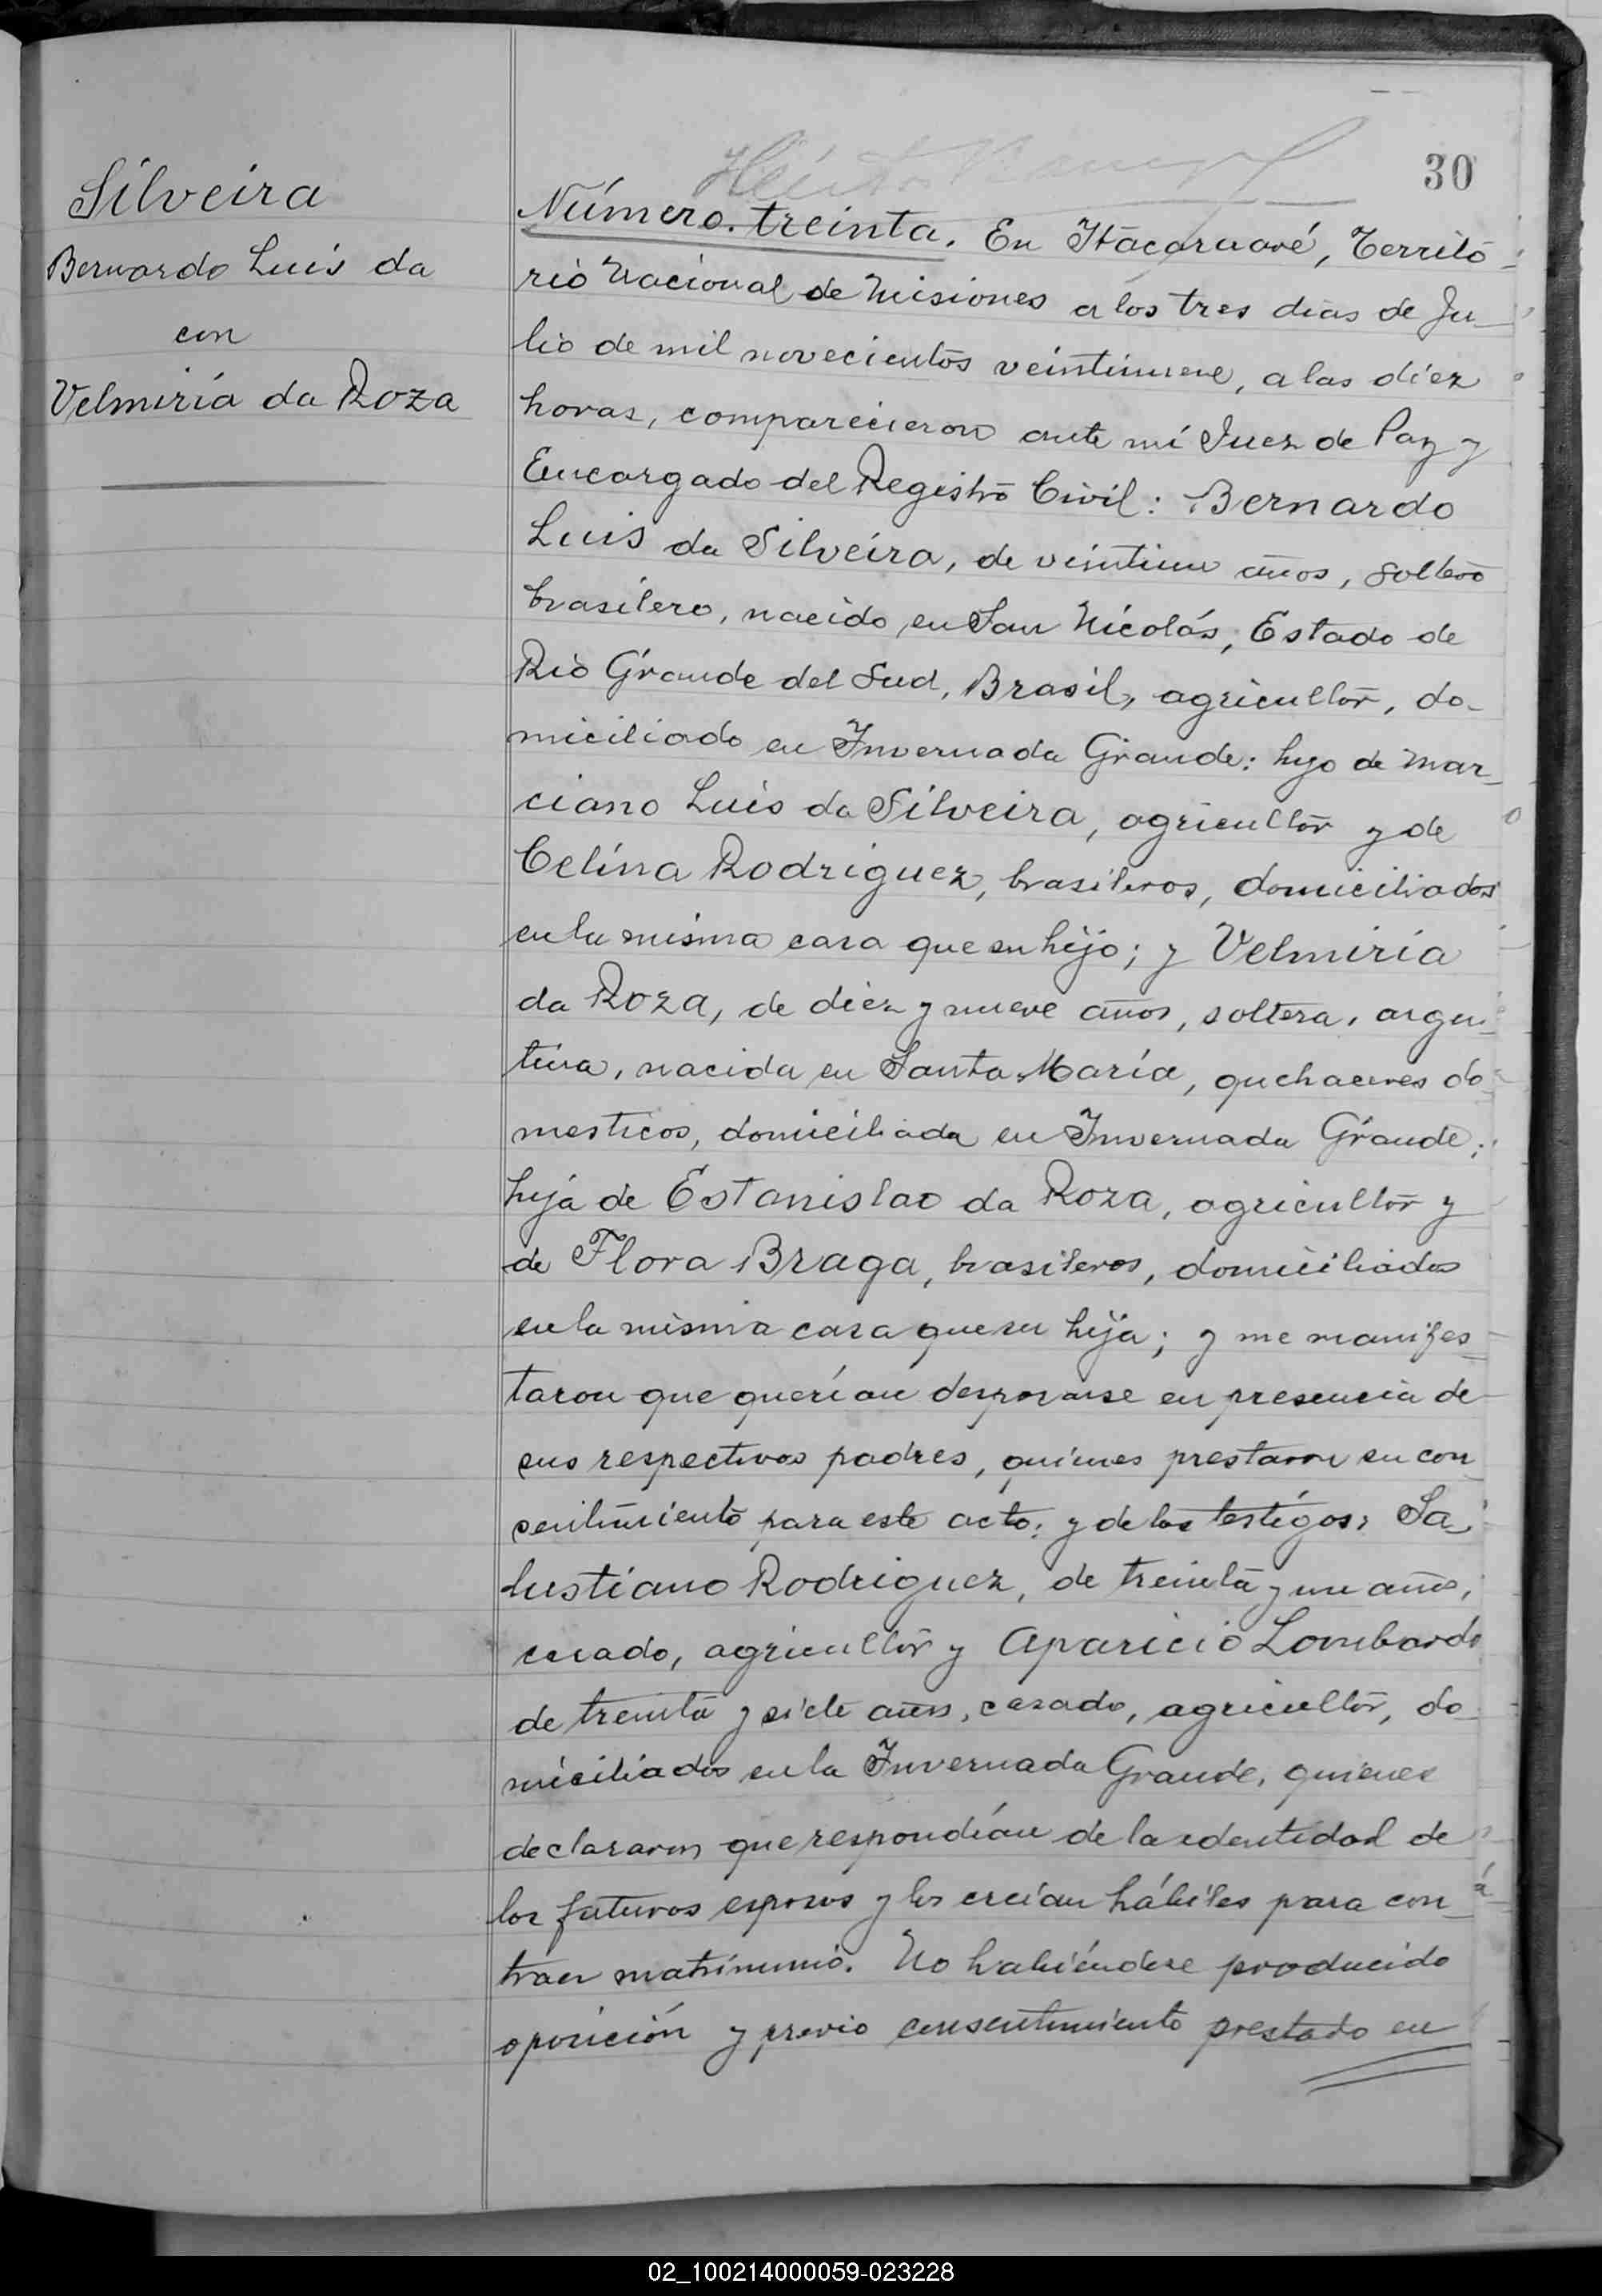 30
Silveira
Bernardo Luis da
con
Velmiria da Roza
Número treinta. En Itacaruaré, Territo-
rio Nacional de Misiones a los tres dias de Ju-
lio de mil novecientos veintinueve, a las diez
horas, comparecieron ante mi Juez de Paz y
Encargado del Registro Civil: Bernardo
Luis da Silveira, de veintiun años, soltero
brasilero, nacido en San Nicolás, Estado de
Rio Grande del Sud, Brasil, agricultor, do-
miciliado en Invernada Grande: hijo de Mar-
ciano Luis da Silveira, agricultor y de
Celina Rodriguez, brasileros, domiciliados
en la misma casa que su hijo; y Velmiria
da Roza, de diez y nueve años, soltera, argen-
tina, nacida en Santa María, quehaceres do-
mesticos, domiciliada en Invernada Grande;
hija de Estanislao da Roza, agricultor y
de Flora Braga, brasileros, domiciliados
en la misma casa que su hija; y me manifes-
taron que querían desposarse en presencia de
sus respectivos padres, quienes prestaron su con-
sentimiento para este acto: y de los testigos: Sa-
lustiano Rodriguez, de treinta y un años,
casado, agricultor y Aparicio Lombardo
de treinta y siete años, casado, agricultor, do-
miciliados en la Invernada Grande, quienes
declararon que respondían de la identidad de
los futuros esposos y los creían hábiles para con-
traer matrimonio. No habiéndose producido
oposición y previo consentimiento prestado en
02_100214000059-023228